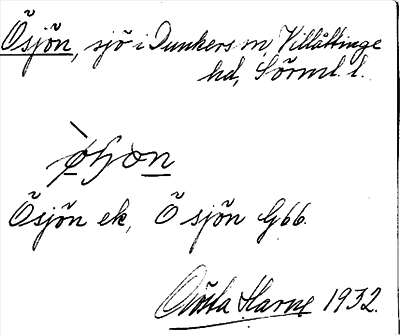 Ösjön, sjö i Dunkers sn, Villåttinge
hd, Sörml. l.
Ösjön ek, Ö sjön G66.
Gösta Harne 1932.